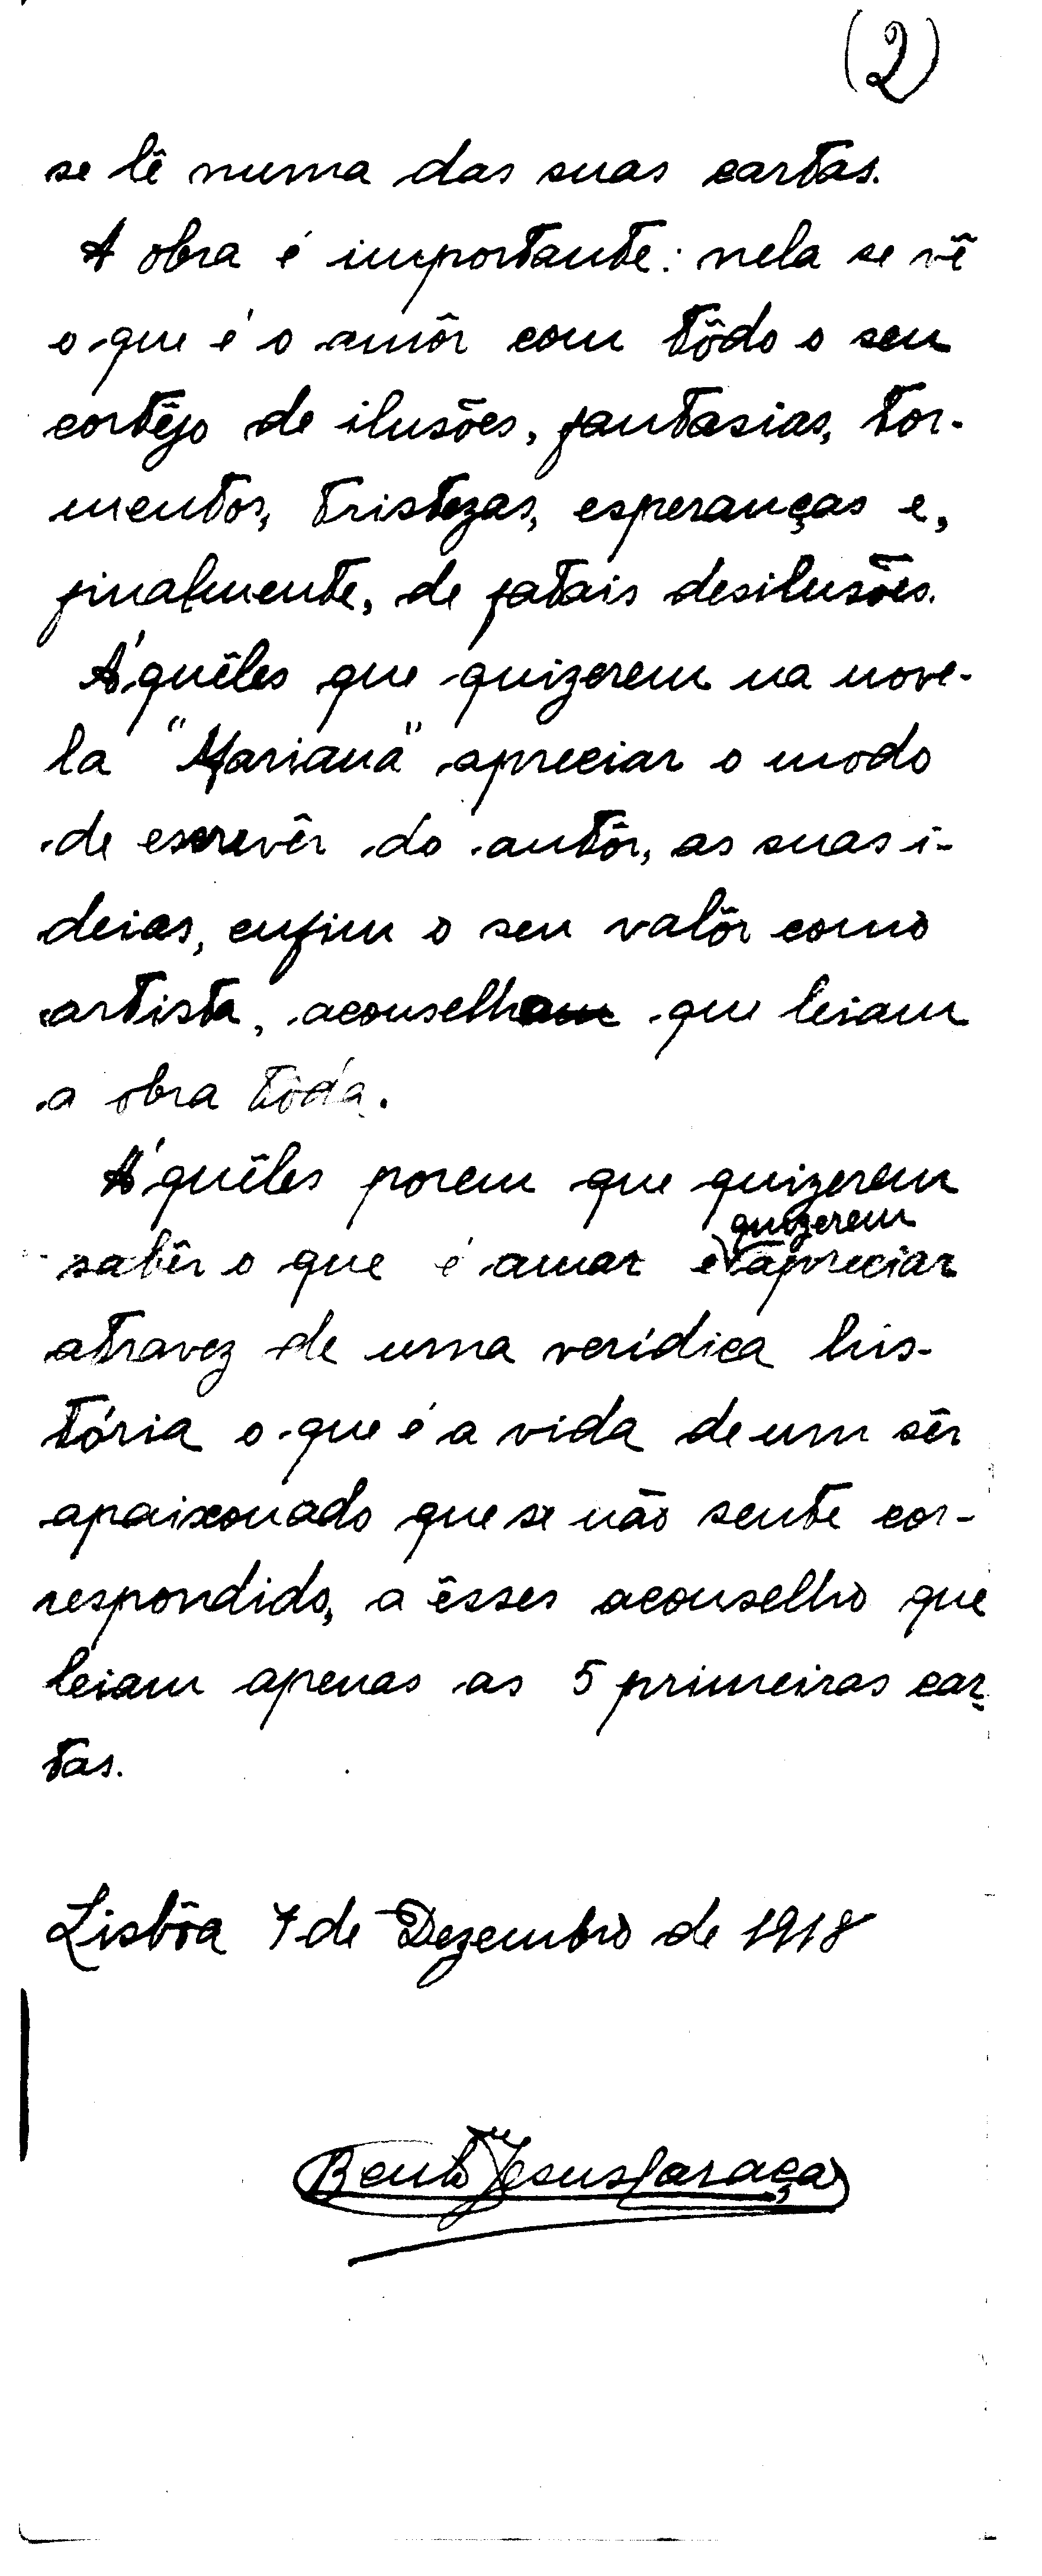 (2)
se lê numa das suas cartas.
A obra é importante: nela se vê
o que é o amôr com tôdo o seu
cortêjo de ilusões, fantasias, tor-
mentos, tristezas, esperanças e,
finalmente, de fatais desilusões.
Áquêles que quizerem na nove-
la "Mariana" apreciar o modo
de escrevêr do autôr, as suas i-
deias, enfim o seu valôr como
artista, aconselho que leiam
a obra tôda.
Áquêles porem que quizerem
quizerem
sabêr o que é amar e apreciar
atravez de uma verídica his-
tória o que é a vida de um sêr
apaixonado que se não sente cor-
respondido, a êsses aconselho que
leiam apenas as 5 primeiras car-
tas.
Lisbôa 7 de Dezembro de 1918
Bento Jesus Caraça